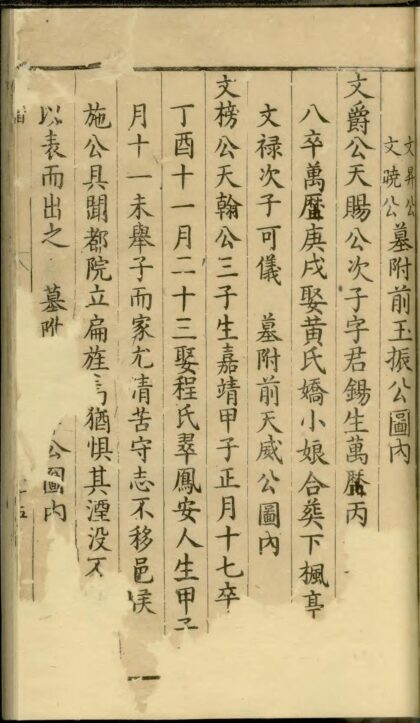 文昇公
文曉公墓附前玉振公圖內
文爵公天賜公次子字君錫生萬曆丙
八卒萬曆庚戌娶黃氏嬌小娘合葬下楓亭
文禄次子可儀 墓附前天威公圖內
文榜公天翰公三子生嘉靖甲子正月十七卒
丁酉十一月二十三娶程氏翠鳳安人生甲子
月十一未舉子而家尤清苦守志不移邑侯
施公具聞都院立扁旌 猶惧其湮没不
以表而出之 墓附 公圖內